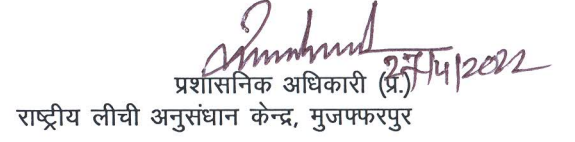 27/4/2022
प्रशासनिक अधिकारी (प्र.)
राष्ट्रीय लीची अनुसंधान केन्द्र, मुजफ्फरपुर